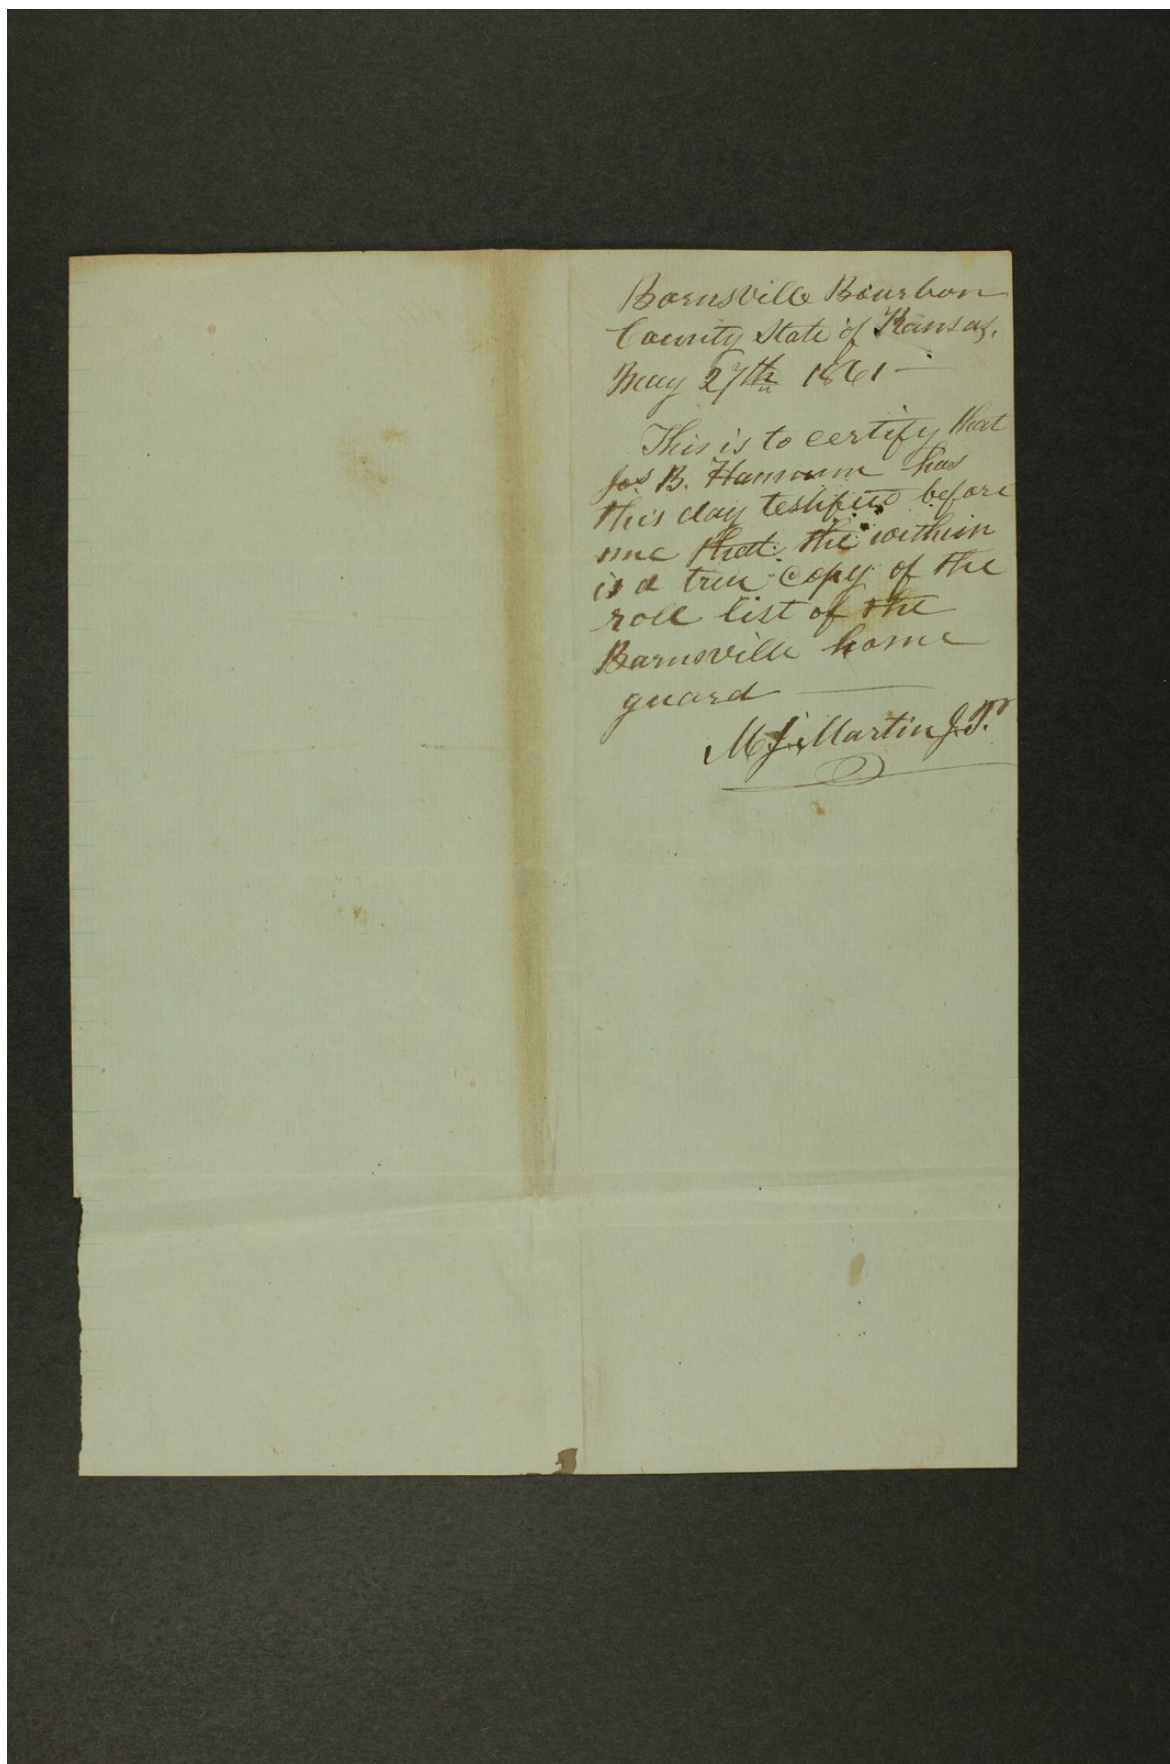 Barnsville Bourbon
County State of Kansas.
May 27th 1861 —
This is to certify that
Jos. B. Hannum has
this day testified before
me that the within
is a true copy of the
roll list of the
Barnsville home
guard —
M J Martin J.P.